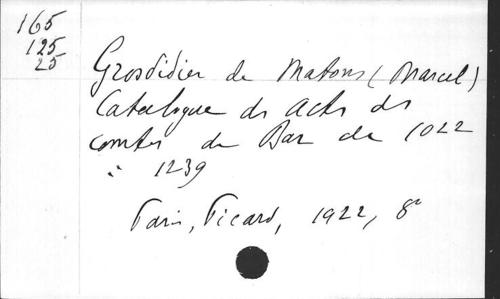 165
125
25
Grosdidier de Matons (Marcel)
Catalogue des Actes des
comtes de Bar de 1022
à 1239
Paris, Picard, 1922, 8°